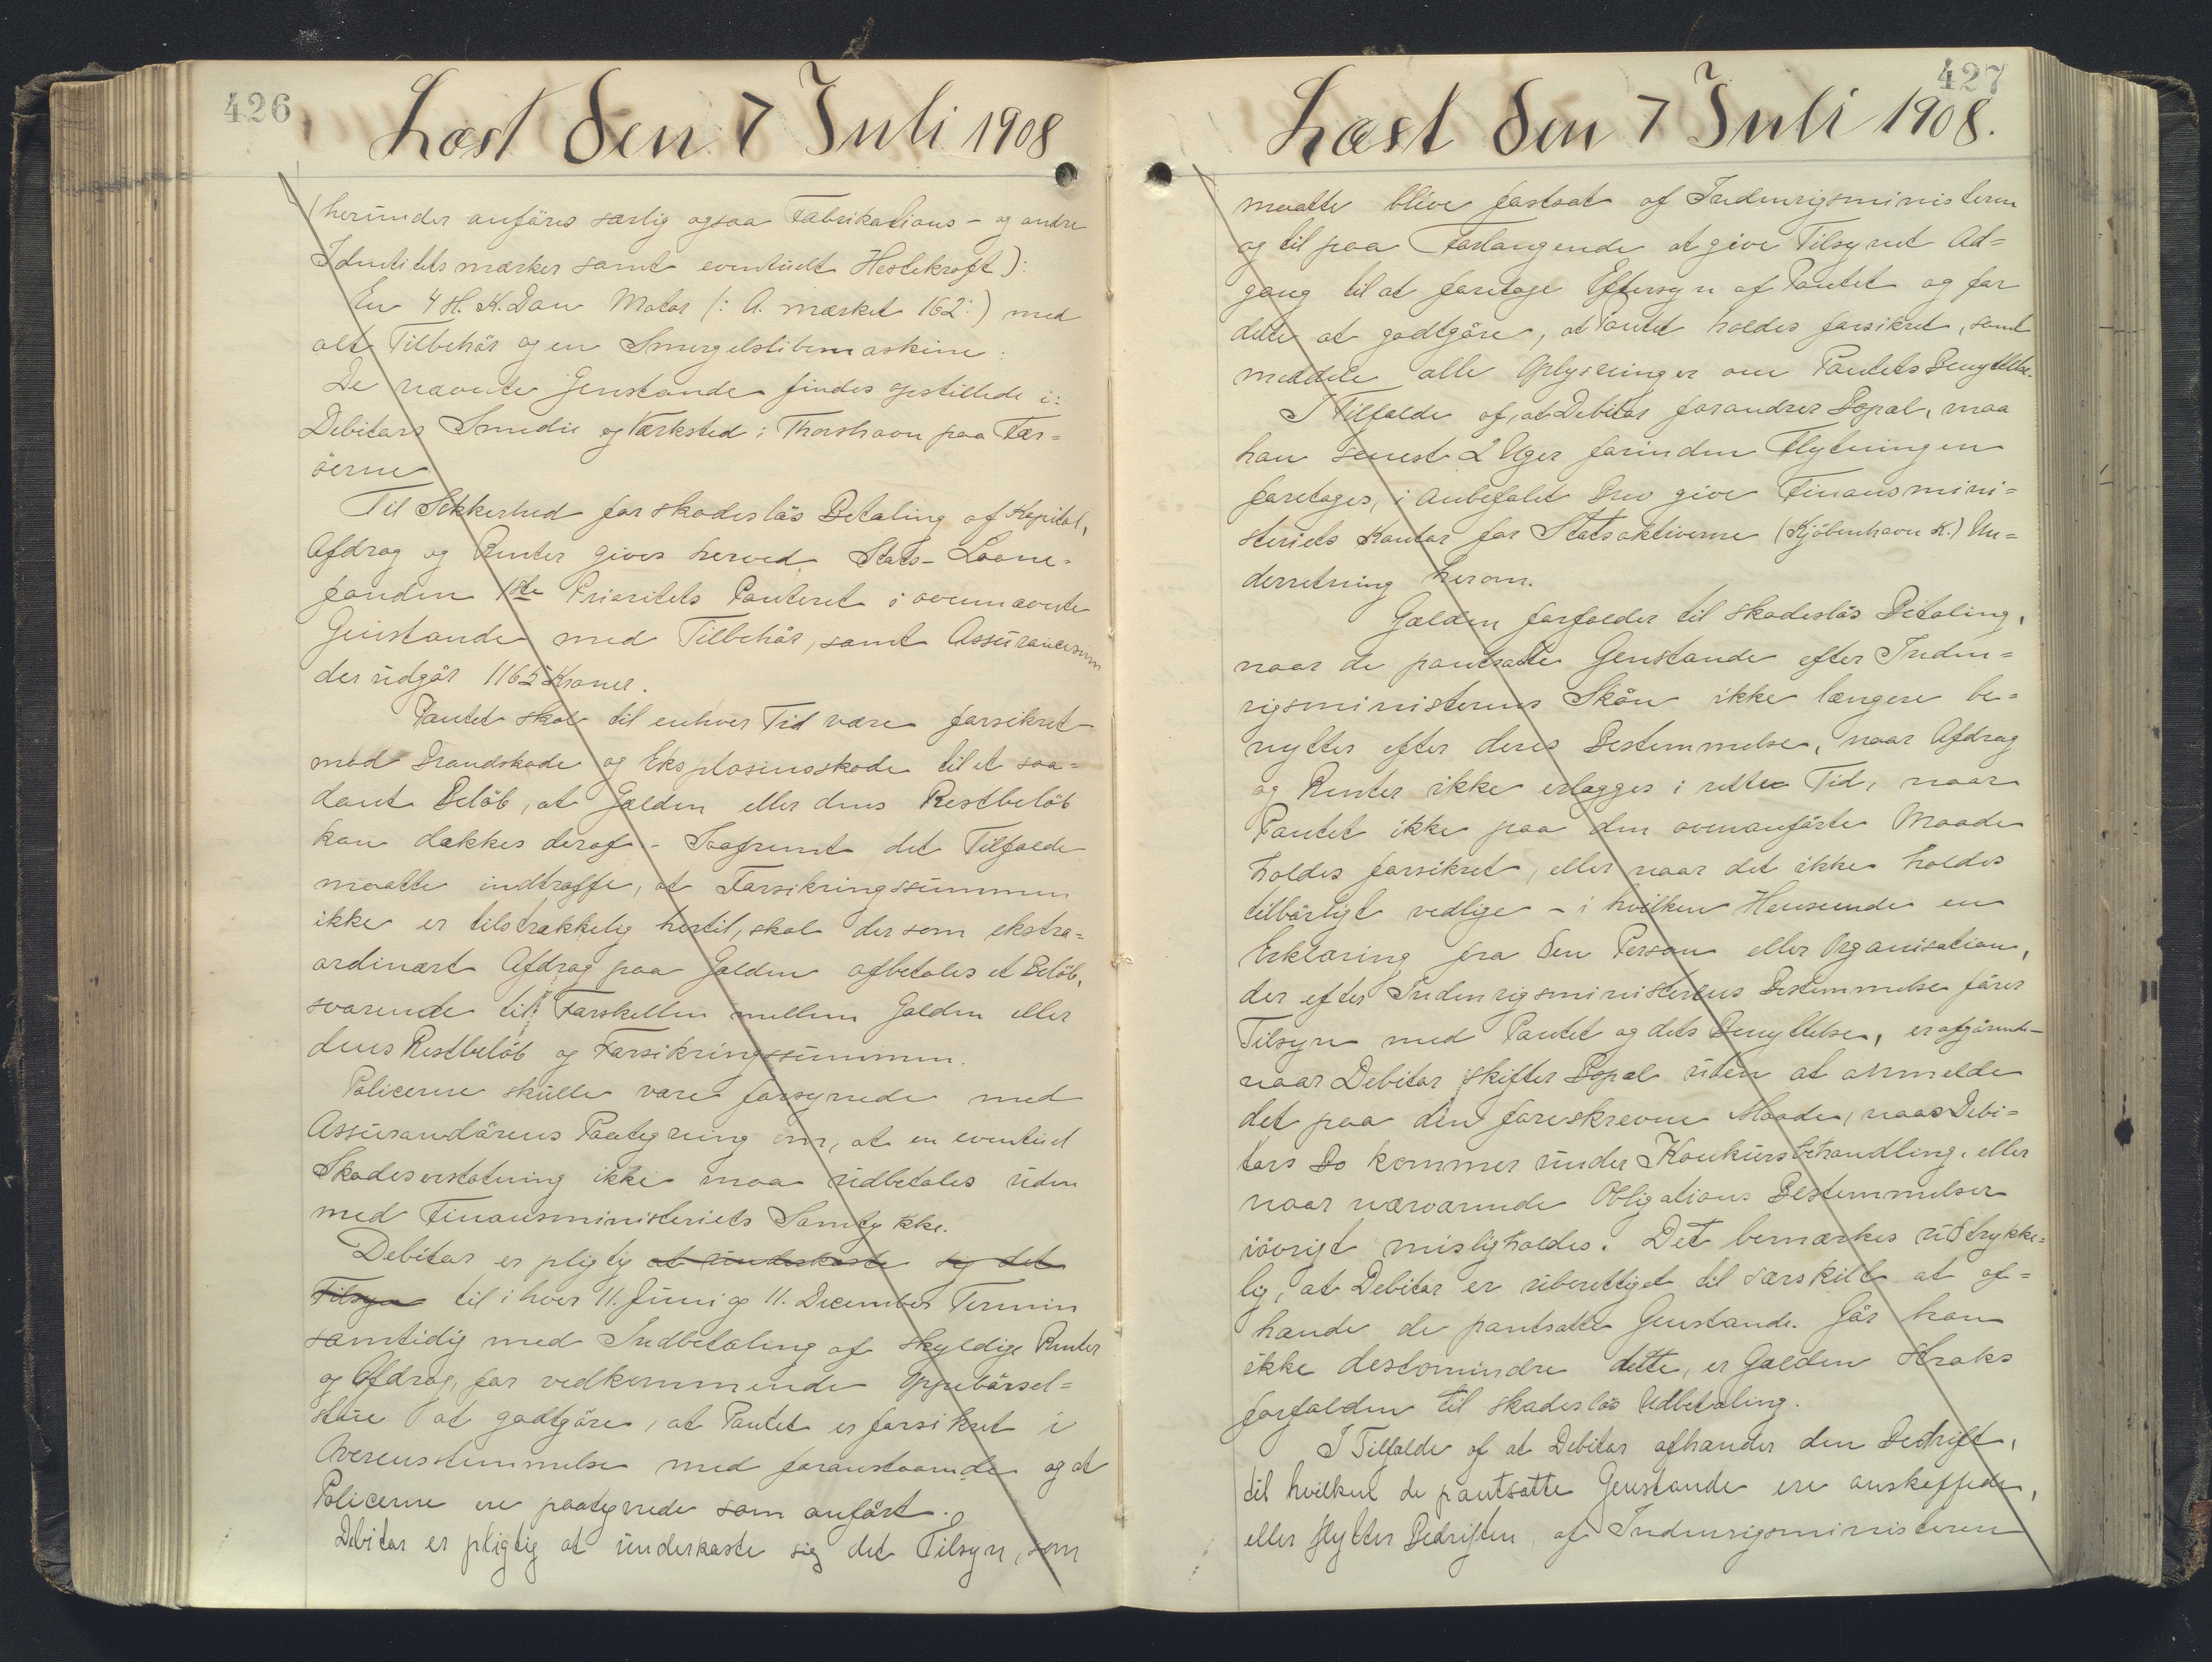 426
Læst Den 7 Juli 1908
(herunder anføres særlig ogsaa Fabrikations- og andre
Identitetsmærker samt eventuelt Hestekraft):
En 4 H.K. Dan Motor (: A. mærket 162:) med
alt Tilbehör og en Smergelslibemaskine:
De nævnte Genstande findes opstillede i:
Debitors Smedie og Værksted i Thorshavn paa Fær=
öerne
Til Sikkerhed for skadeslös Betaling af Kapital,
Afdrag og Renter gives herved Stats-Laane=
fonden 1ste Prioritets Panteret i ovennævnte
Genstande med Tilbehör, samt Assurancesum
der udgör 1165 Kroner.
Pantet skal til enhver Tid være forsikret
mod Brandskade og Eksplosionsskade til et saa=
dant Belöb, at Gælden eller dens Restbelöb
kan dækkes deraf - Saafremt det Tilfælde
maatte indtræffe, at Forsikringssummen
ikke er tilstrækkelig hertil, skal der som ekstra=
ordinært Afdrag paa Gælden afbetales et Belöb,
svarende til Forskellen mellem Gælden eller
dens Restbelöb og Forsikringssummen.
Policerne skulle være forsynede med
Assurandörens Paategning om, at en eventuel
Skadeserstatning ikke maa udbetales uden
med Finansministeriets Samtykke.
Debitor er pligtig at underkaste sig det
Tilsyn til i hver 11. Juni og 11. December Termin
samtidig med Indbetaling af skyldige Renter
og Afdrag, for vedkommende Oppebörsel=
stue at godtgöre, at Pantet er forsikret i
Overensstemmelse med foranstaaende og at
Policerne ere paategnede som anfört.
Debitor er pligtig at underkaste sig det Tilsyn, som
427
Læst Den 7 Juli 1908.
maatte blive fastsat af Indenrigsministeren
og til paa Forlangende at give Tilsynet Ad=
gang til at foretage Eftersyn af Pantet og for
dette at godtgöre, at Pantet holdes forsikret, samt
meddele alle Oplysninger om Pantets Benyttelse.
I Tilfælde af, at Debitor forandrer Bopæl, maa
han senest 2 Uger forinden Flytningen
foretages, i anbefalet Brev give Finansmini=
steriets Kontor for Statsaktiverne (Kjöbenhavn K.) Un=
derretning herom.
Gælden forfalder til skadeslös Betaling,
naar de pantsatte Genstande efter Inden=
rigsministerens Skön ikke længere be=
nyttes efter deres Bestemmelse, naar Afdrag
og Renter ikke erlægges i rette Tid, naar
Pantet ikke paa den ovenanförte Maade
holdes forsikret, eller naar det ikke holdes
tilbörligt vedlige - i hvilken Henseende en
Erklæring fra den Person eller Organisation,
der efter Indenrigsministerens Bestemmelse förer
Tilsyn med Pantet og dets Benyttelse, er afgörende-
naar Debitor skifter Bopæl uden at anmelde
det paa den foreskrevne Maade, naar Debi=
tors Bo kommer under Konkursbehandling, eller
naar nærværende Obligations Bestemmelser
iövrigt misligholdes. Det bemærkes udtrykke=
lig, at Debitor er uberettiget til særskilt at af=
hænde de pantsatte Genstande. Gör han
ikke destomindre dette, er Gælden straks
forfalden til skadeslös Udbetaling.
I Tilfælde af at Debitor afhænder den Bedrift,
til hvilken de pantsatte Genstande ere anskaffede,
eller flytter Bedriften, af Indenrigsministeren